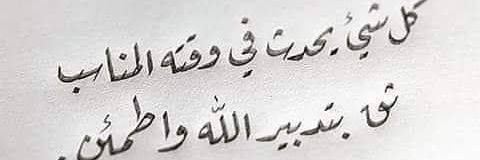 كل شيئ يحدث في وقته المناسب
ثق بتدبير الله واطمئن.